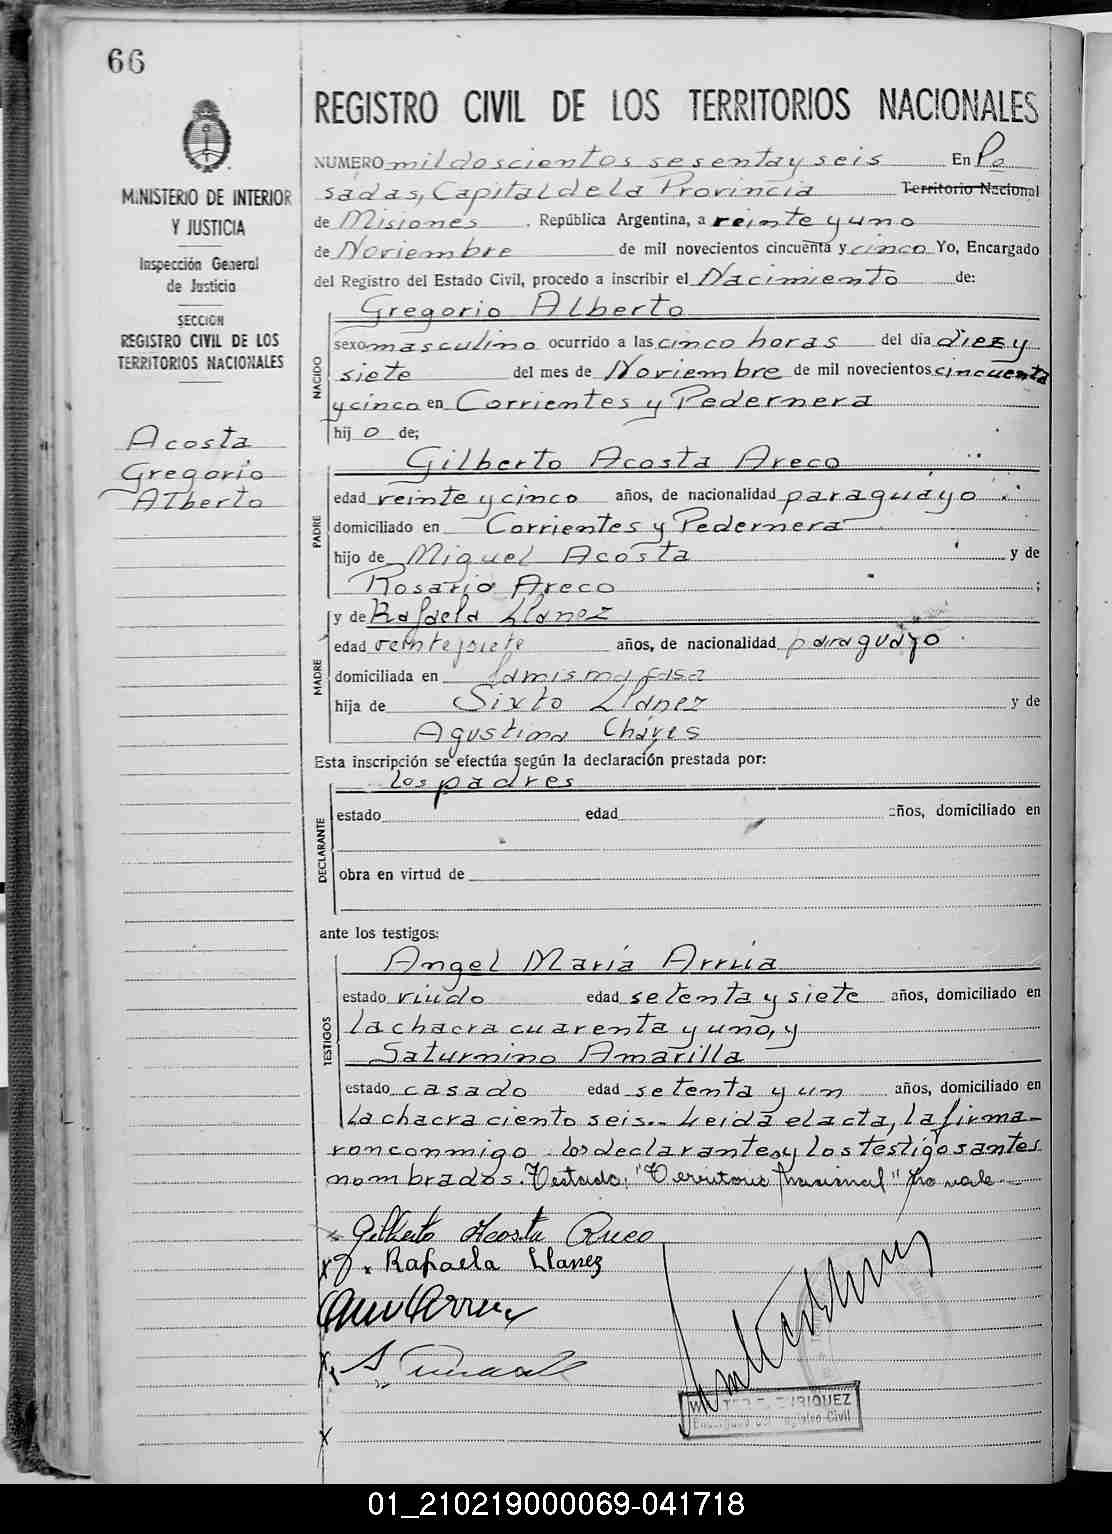 66
MINISTERIO DE INTERIOR
Y JUSTICIA
Inspección General
de Justicia
SECCION
REGISTRO CIVIL DE LOS
TERRITORIOS NACIONALES
Acosta
Gregorio
Alberto
REGISTRO CIVIL DE LOS TERRITORIOS NACIONALES
NUMERO mil doscientos sesenta y seis En Po
sadas, Capital de la Provincia Territorio Nacional
de Misiones, República Argentina, a veinte y uno
de Noviembre de mil novecientos cincuenta y cinco Yo, Encargado
del Registro del Estado Civil, procedo a inscribir el Nacimiento de:
NACIDO
Gregorio Alberto
sexo masculino ocurrido a las cinco horas del día diez y
siete del mes de Noviembre de mil novecientos cincuenta
y cinco en Corrientes y Pedernera
hij o de;
PADRE
Gilberto Acosta Areco
edad veinte y cinco años, de nacionalidad paraguayo
domiciliado en Corrientes y Pedernera
hijo de Miguel Acosta y de
Rosario Areco ;
MADRE
y de Rafaela Llanez
edad veinte y siete años, de nacionalidad paraguayo
domiciliada en la misma casa
hija de Sixto Llanez y de
Agustina Cháves
Esta inscripción se efectúa según la declaración prestada por:
los padres
DECLARANTE
estado edad años, domiciliado en
obra en virtud de
ante los testigos:
TESTIGOS
Angel María Arrúa
estado viudo edad setenta y siete años, domiciliado en
la chacra cuarenta y uno, y
Saturnino Amarilla
estado casado edad setenta y un años, domiciliado en
la chacra ciento seis.- Leida el acta, la firma-
ron conmigo los declarantes y los testigos antes
nombrados. Testado: "Territorio Nacional" No vale.-
Gilberto Acosta Areco
x Rafaela Llanez
ENRIQUEZ
Encargado del Registro Civil
01_210219000069-041718